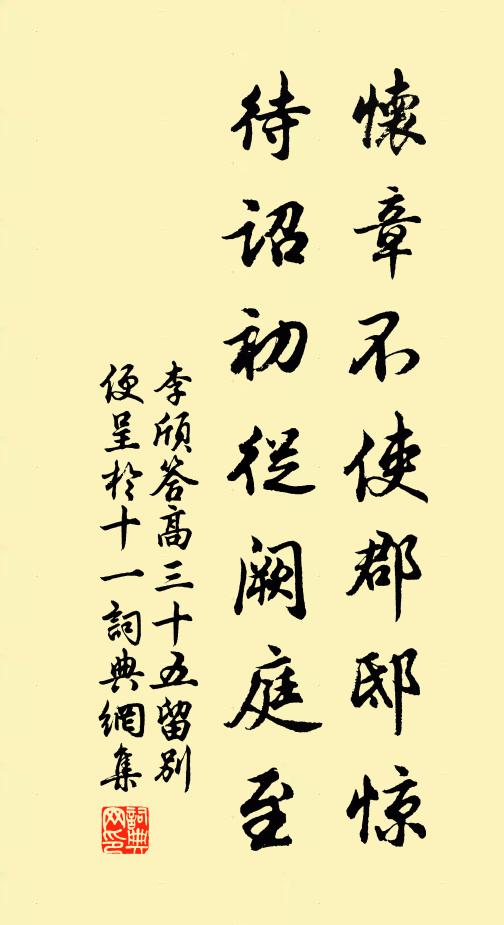 懷章不使郡邸惊
待詔初從闕庭至
李頎答高三十五留别
便呈於十一詞典網集
詞典网印